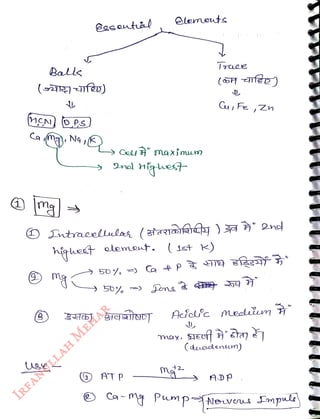 Essential Elements
Balk
(ज्यादा चाहिए)
Trace
(कम चाहिए)
Cu, Fe, Zn
HCN O P S
Ca, Mg, Na, K
Cell में maximum
2nd highest
① Mg ⇒
① Intracellular (अंतराकोशिकीय) द्रव में 2nd
highest element. (1st K)
② Mg → 50% ⇒ Ca + P के साथ हड्डियों में
→ 50% ⇒ Ions के रूप में
③ इसका अवशोषण Acidic medium में
max. ग्रहणी में होता है।
(duodenum)
Use:-
① ATP Mg+2 → ADP
② Ca-Mg Pump ⇒ Nervous Impuls
IRFANULLAH MEHAR